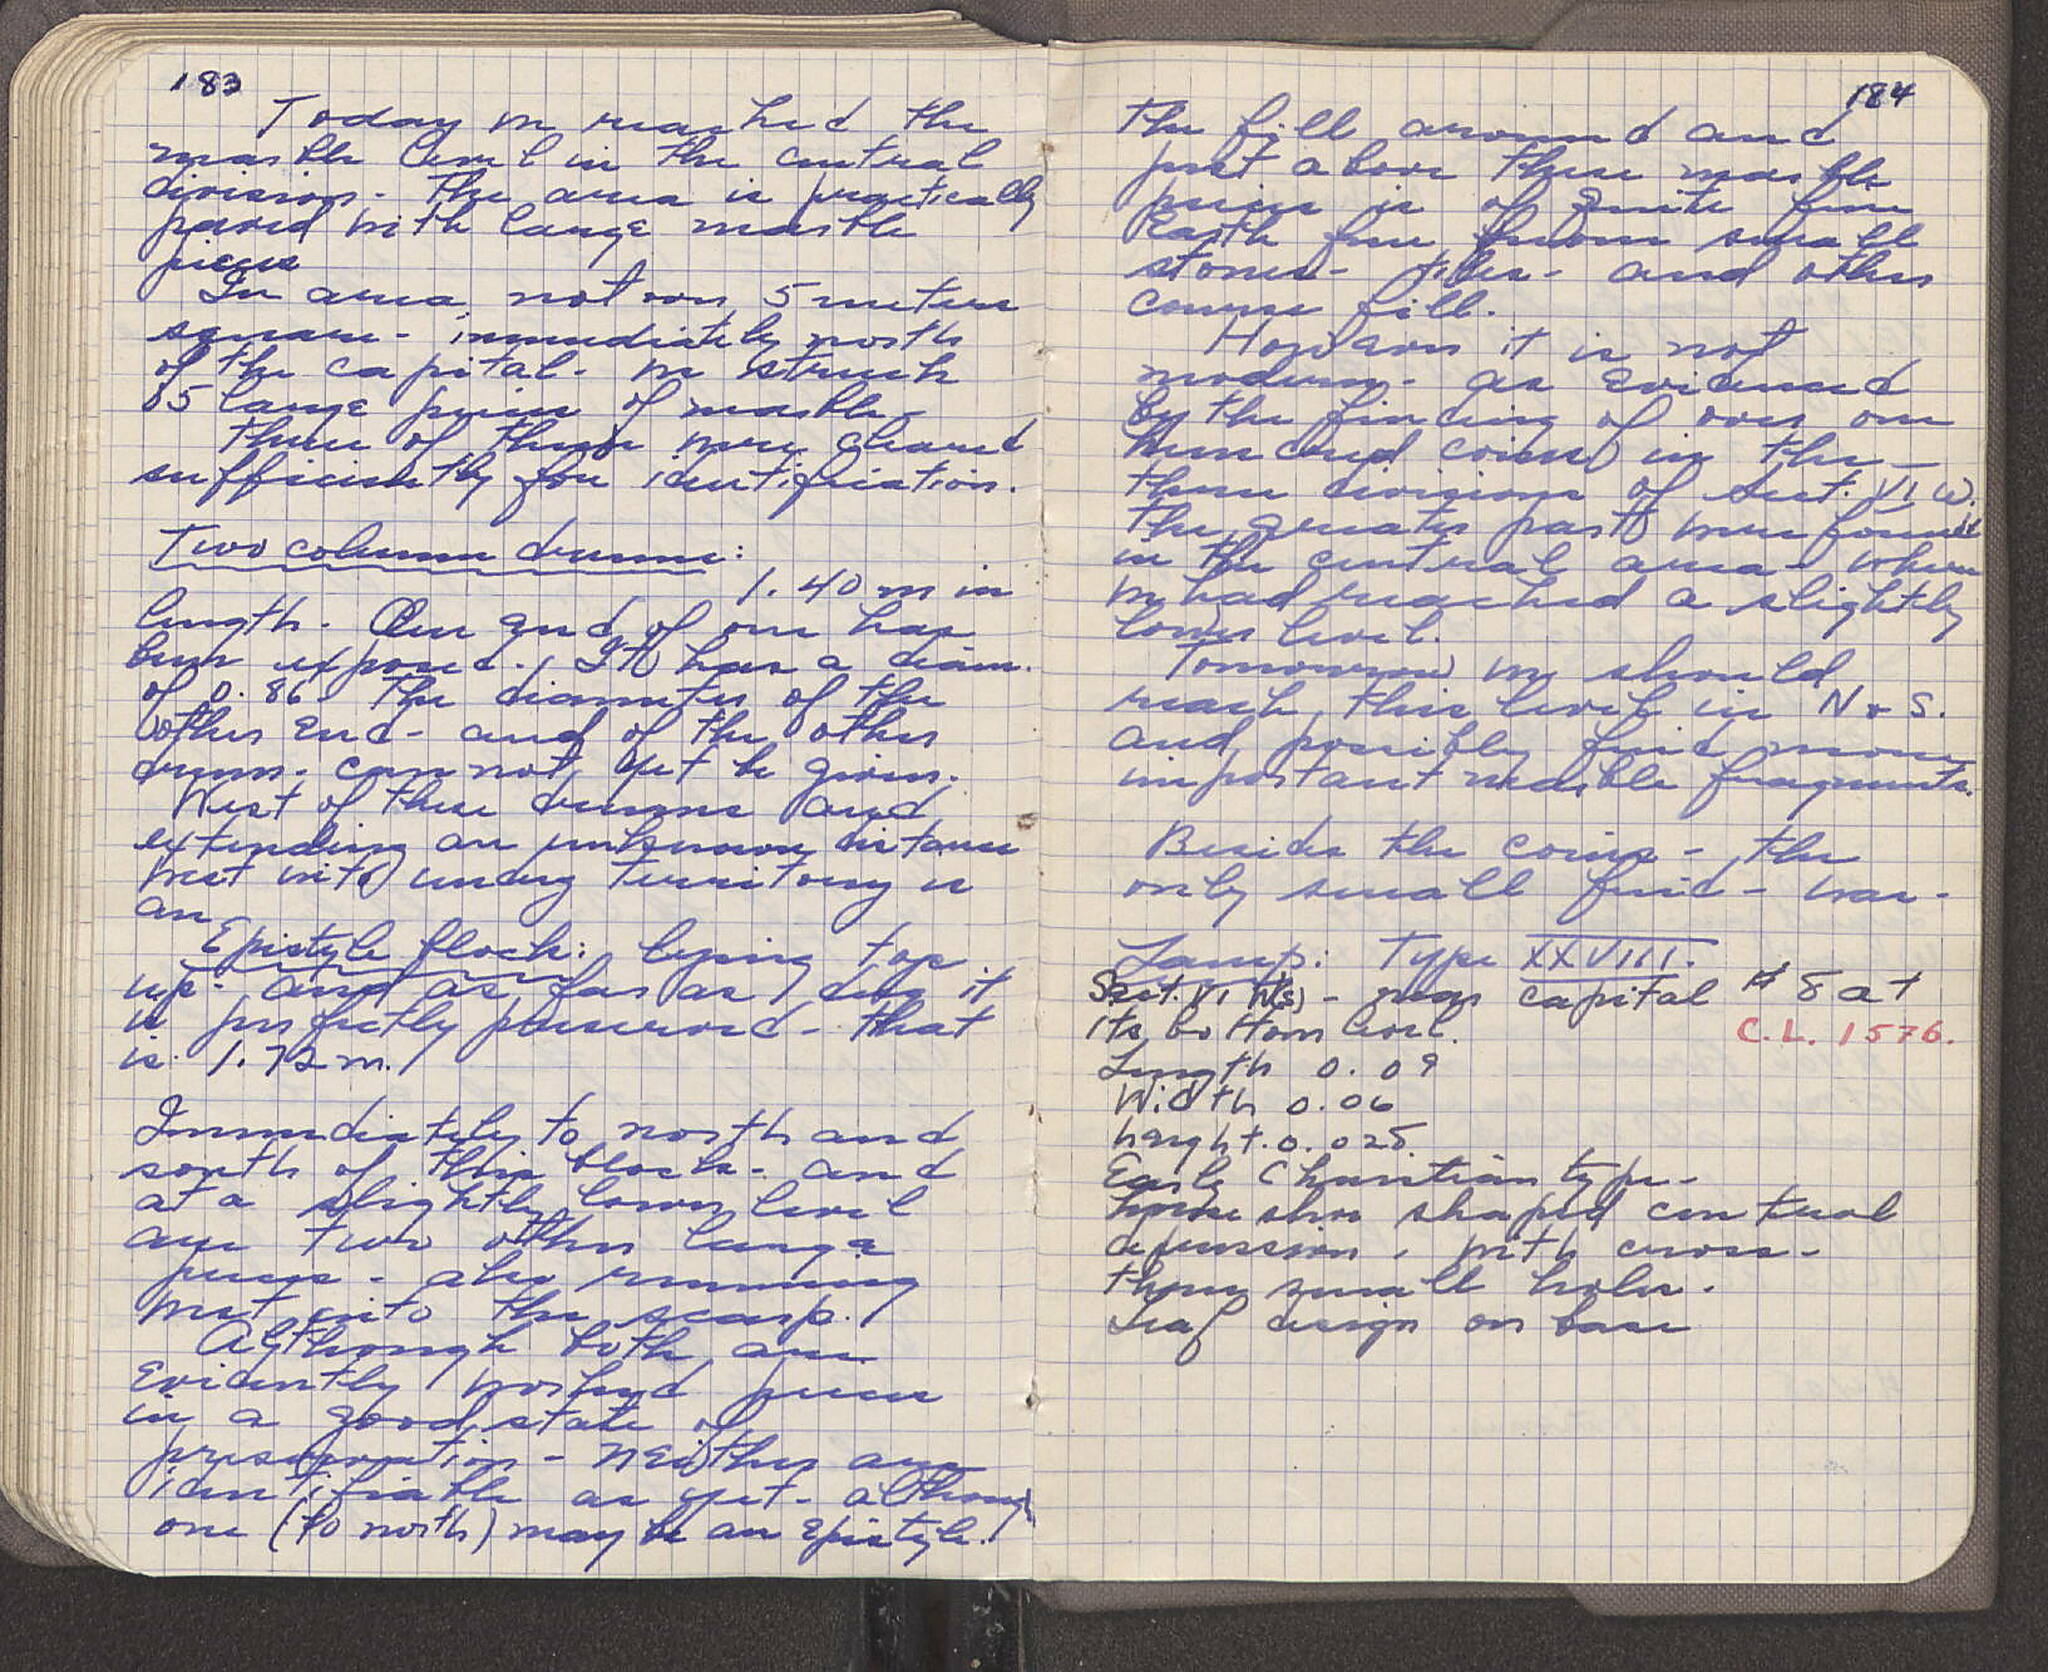 183
Today we reached the
marble level in the central
division - The area is practically
paved with large marble
pieces
In area, not over 5 meters
square - immediately north
of the capital - we struck
5 large pieces of marble -
Three of these were cleared
sufficiently for identification.
Two column drums:
1.40 m in
length. One end of one has
been exposed., It has a diam.
of 0.86 - The diameter of the
other end - and of the other
drum - can not yet be given.
West of these drums and
extending an unknown distance
West into unexc territory is
an
Epistyle block: lying top
up - and as far as dug it
is perfectly preserved - that
is 1.72 m.
Immediately to north and
south of this block - and
at a slightly lower level
are two other large
pieces - also running
west into the scarp.
Although both are
Evidently worked pieces
in a good state of
preservation - neither are
identifiable as yet - although
one (to north) may be an Epistyle.
184
The fill around and
just above these marble
pieces is of quite fine
Earth free from small
stones - tiles - and other
course fill.
However it is not
modern - as evidenced
by the finding of over one
hundred coins in the -
three divisions of Sect. VI W.
The greater part were found
in the central area - where
we had reached a slightly
lower level.
Tomorrow we should
reach this level in N & S.
and possibly find more
important marble fragments.
Besides the coins - the
only small find - was -
Lamp: Type XXVIII.
Sect. VI W(s) - near capital # 8 at
its bottom level.
C.L. 1576.
Length 0.09
Width 0.06
height. 0.025
Early Christian type -
horse shoe shaped central
depression, with cross -
three small holes.
Leaf design on base